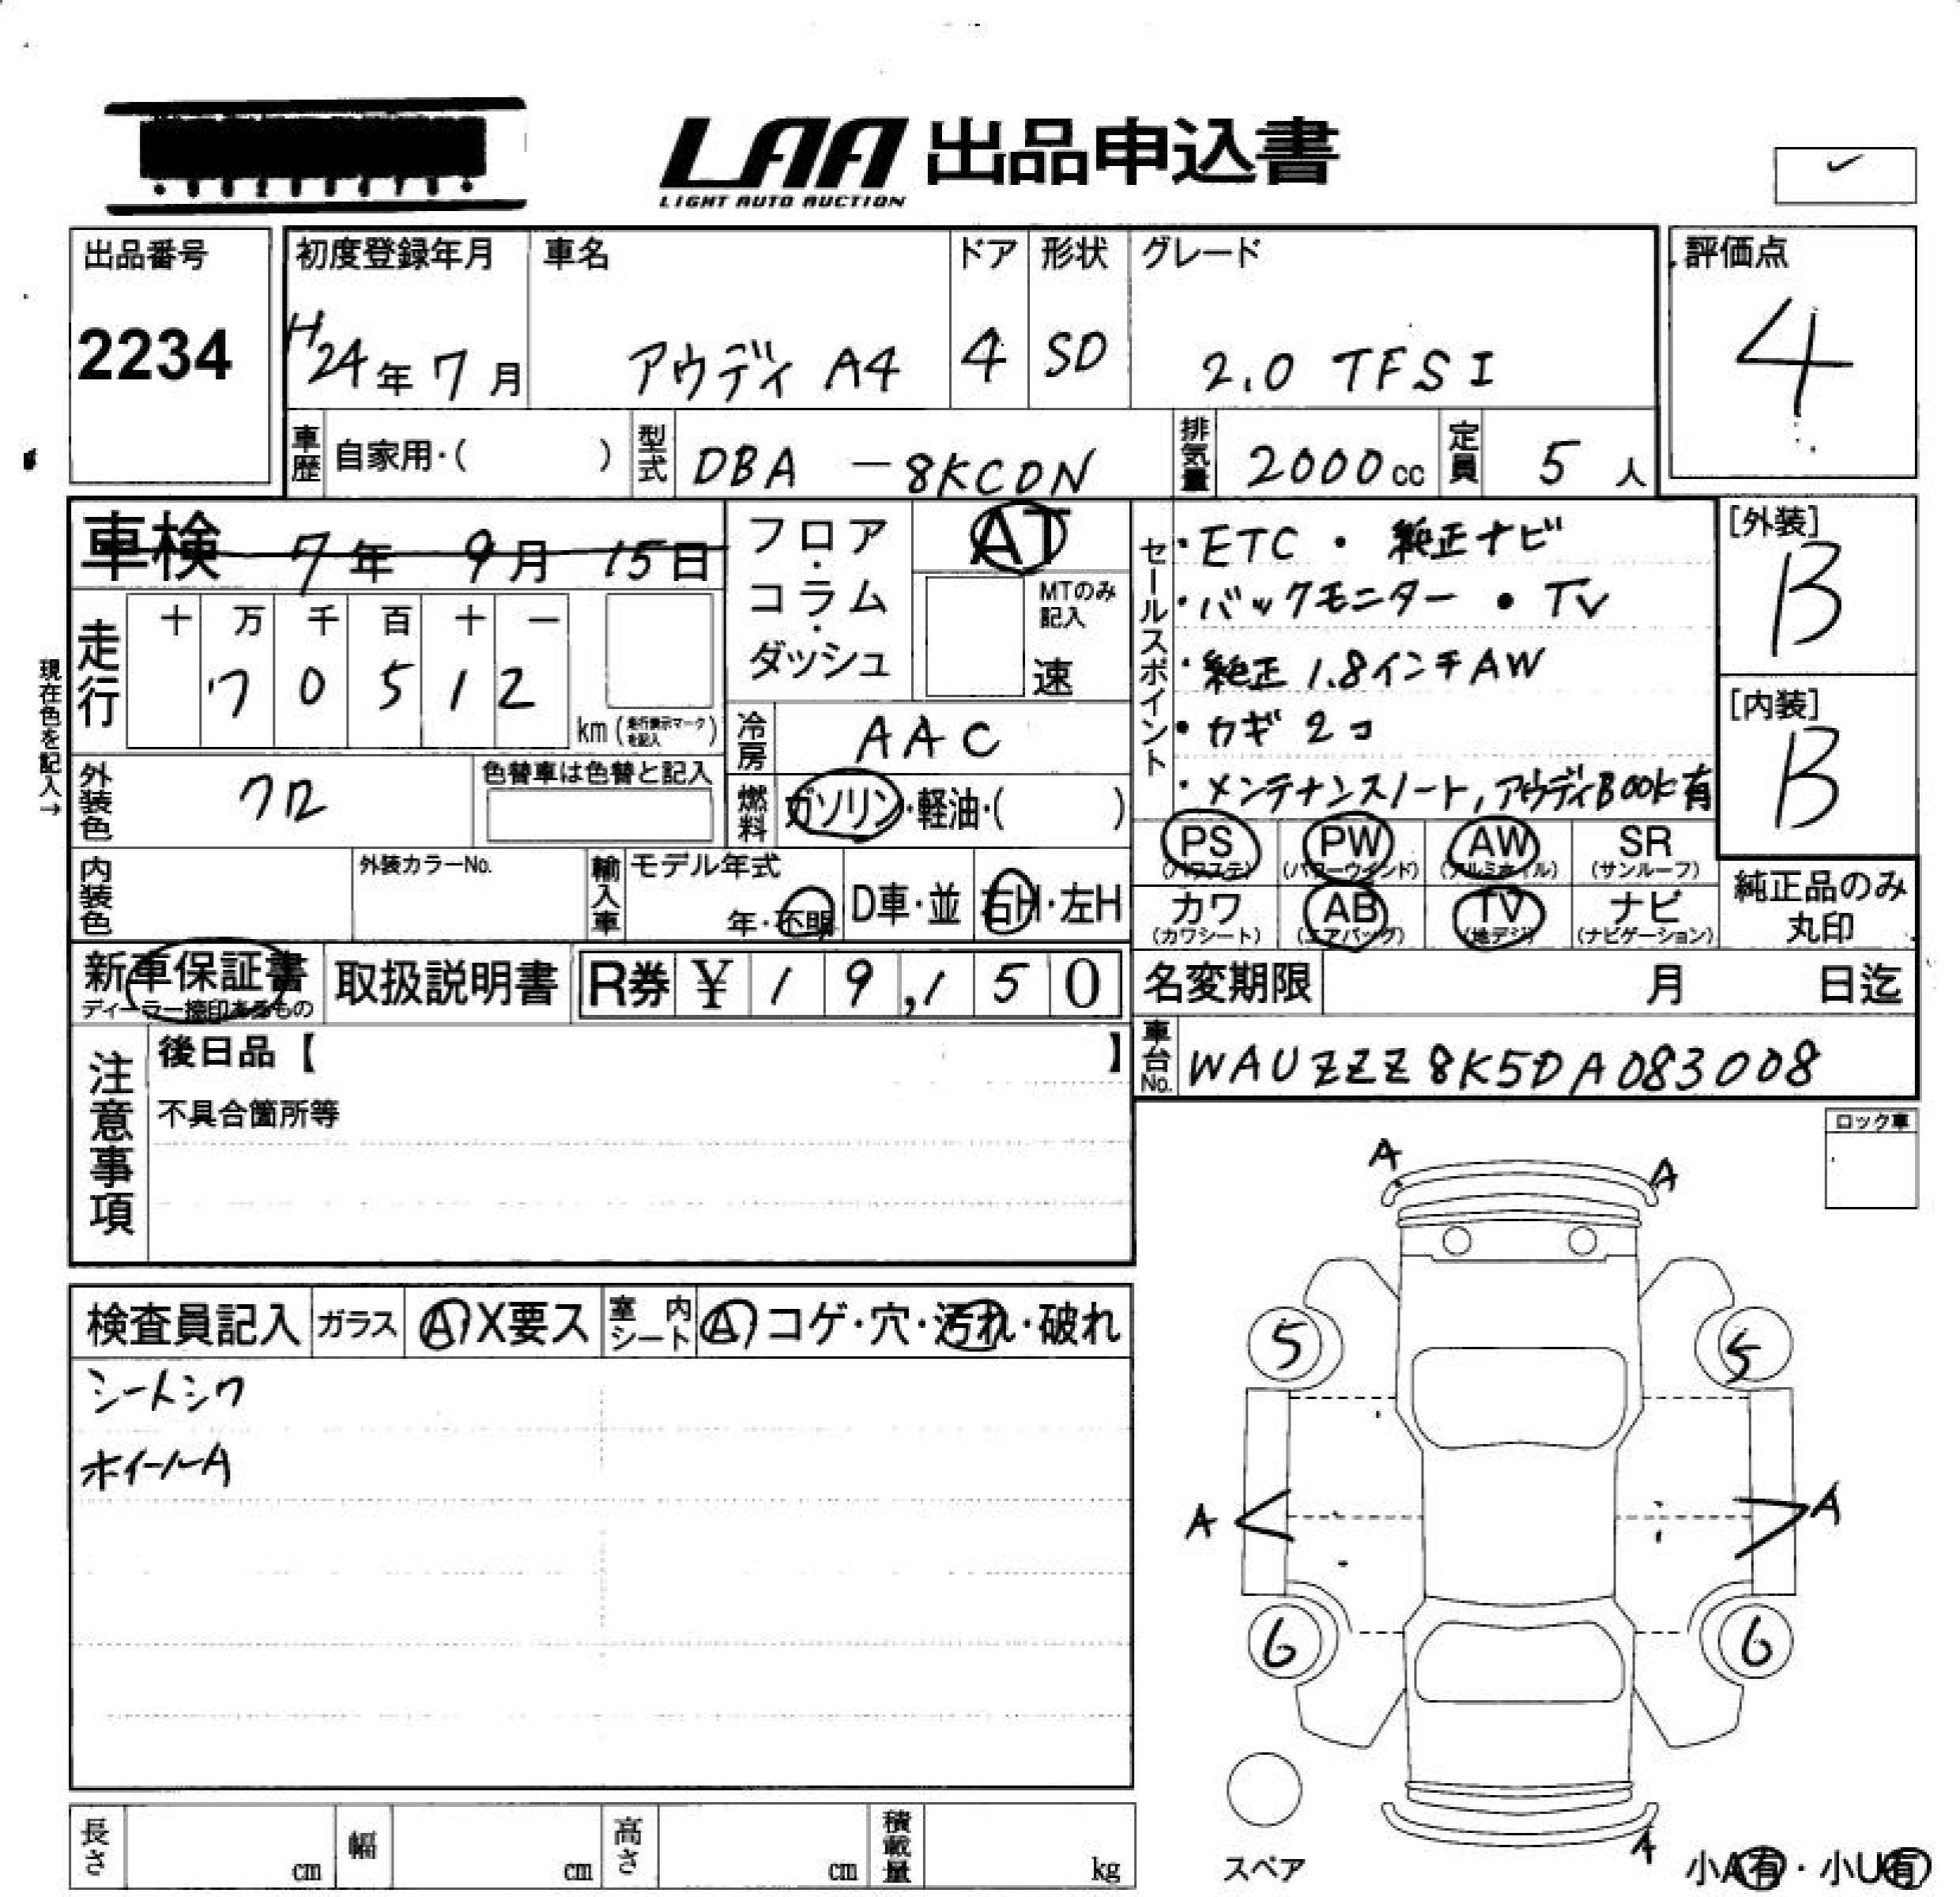 LAA 出品申込書
LIGHT AUTO AUCTION
出品番号 初度登録年月 車名 ドア 形状 グレード 評価点
2234 H24年 7月 アウディ A4 4 SD 2.0 TFSI 4
車歴 自家用・( ) 型式 DBA -8KCDN 排気量 2000cc 定員 5人
車検 7年 9月 15日
フロア・コラム・ダッシュ AT
MTのみ記入
速
セールスポイント
・ETC ・純正ナビ
・バックモニター ・TV
・純正 1.8インチAW
・カギ 2コ
・メンテナンスノート,アウディBOOK有
[外装]
B
[内装]
B
現在色を記入→
走行 十 万 千 百 十 一
7 0 5 1 2
km (走行表示マークを記入)
冷房 AAC
外装色 クロ 色替車は色替と記入
燃料 ガソリン・軽油・( )
PS PW AW SR
(パワステ) (パワーウインド) (アルミホイル) (サンルーフ)
内装色 外装カラーNo. 輸入車 モデル年式
年・不明 D車・並 右H・左H
カワ AB TV ナビ
(カワシート) (エアバッグ) (地デジ) (ナビゲーション)
純正品のみ
丸印
新車保証書 取扱説明書 R券 ¥ 1 9,1 5 0
ディーラー捺印あるもの
名変期限 月 日迄
注意事項
後日品【 】
不具合箇所等
車台No. WAUZZZ8K5DA083008
ロック車
検査員記入 ガラス A X要ス 室内シート A コゲ・穴・汚れ・破れ
シートシワ
ホイールA
A A
5 5
A A
6 6
スペア
A
小A有・小U有
長さ cm 幅 cm 高さ cm 積載量 kg